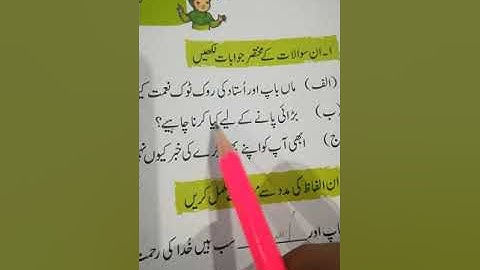 ۱۔ ان سوالات کے مختصر جوابات لکھیں
(الف) ماں باپ اور اُستاد کی روک ٹوک نعمت
(ب) بڑائی پانے کے لیے کیا کرنا چاہیے؟
ج) ابھی آپ کو اپنے بُرے کی خبر کیوں
ان الفاظ کی مدد سے مکمل کریں
باپ اور سب ہیں خُدا کی رحمت